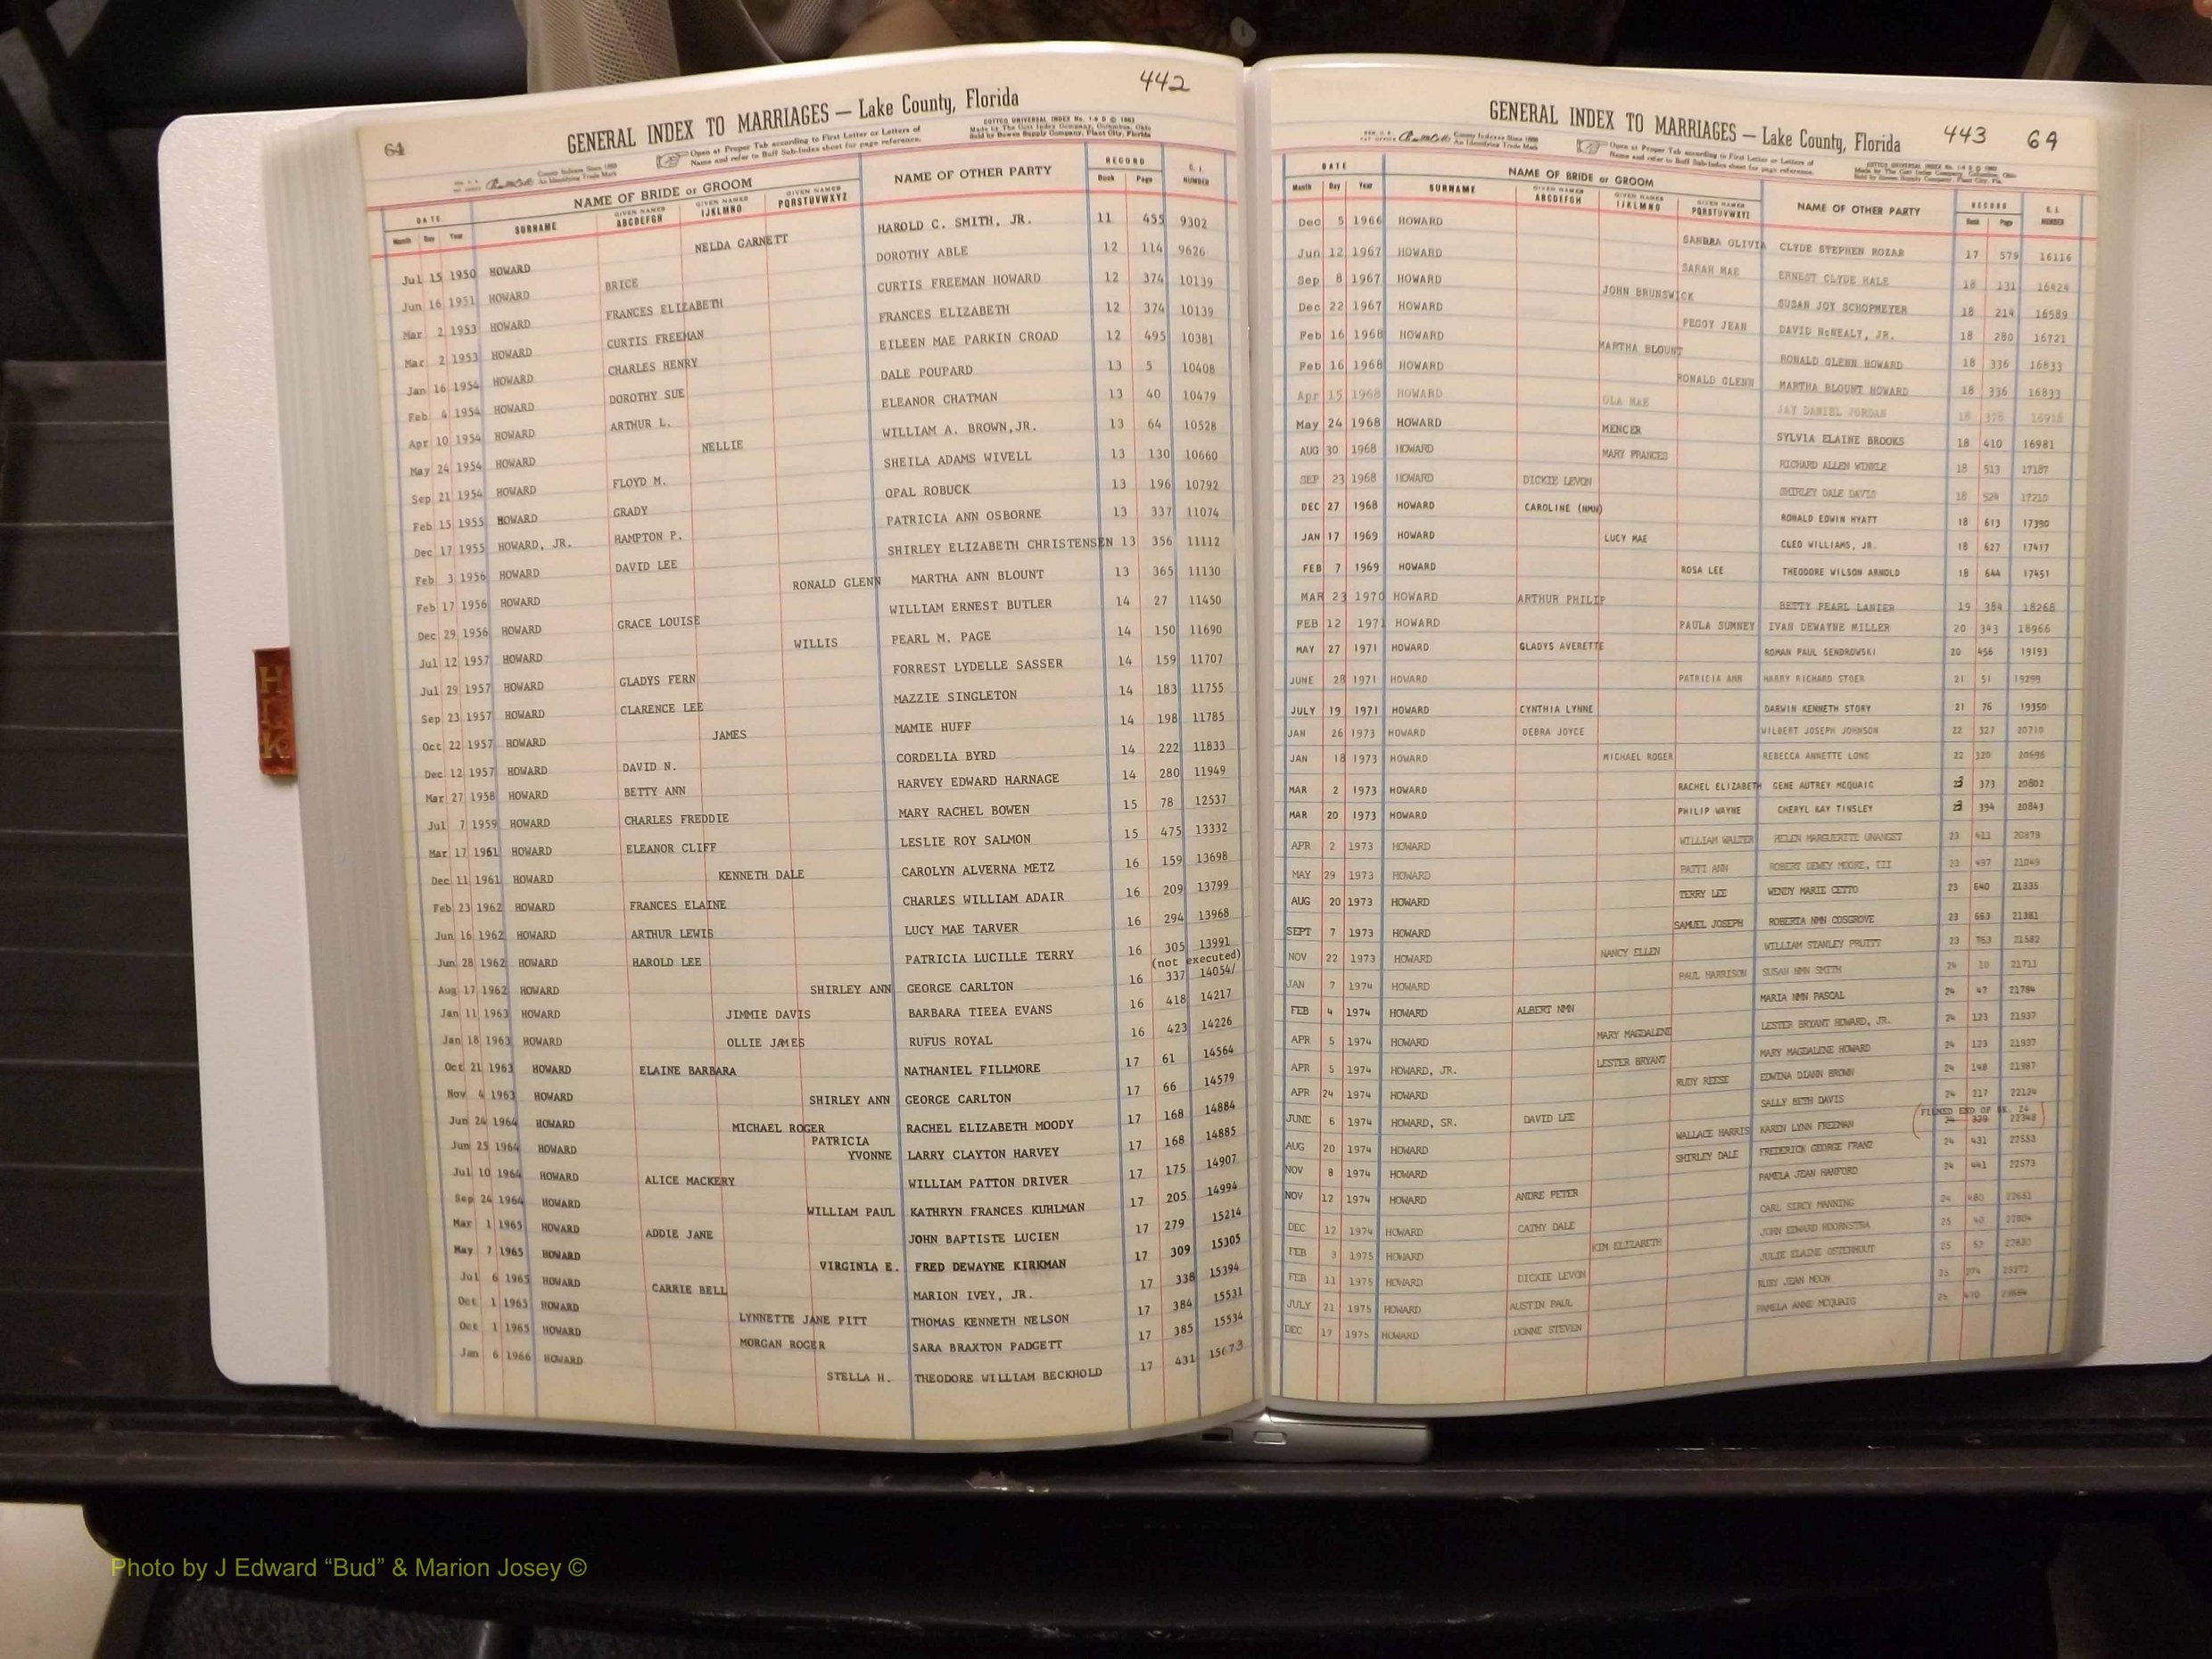 64
442
GENERAL INDEX TO MARRIAGES — Lake County, Florida
COTTCO UNIVERSAL INDEX No. 1-9 D © 1963
Made by The Cott Index Company, Columbus, Ohio
Sold by Bowen Supply Company, Plant City, Florida
County Indexes Since 1888
An Identifying Trade Mark
Open at Proper Tab according to First Letter or Letters of
Name and refer to Buff Sub-Index sheet for page reference.
DATE NAME OF BRIDE or GROOM NAME OF OTHER PARTY RECORD
Month Day Year SURNAME GIVEN NAMES ABCDEFGH GIVEN NAMES IJKLMNO GIVEN NAMES PQRSTUVWXYZ Book Page C. I. NUMBER
Jul 15 1950 HOWARD NELDA GARNETT HAROLD C. SMITH, JR. 11 455 9302
Jun 16 1951 HOWARD BRICE DOROTHY ABLE 12 114 9626
Mar 2 1953 HOWARD FRANCES ELIZABETH CURTIS FREEMAN HOWARD 12 374 10139
Mar 2 1953 HOWARD CURTIS FREEMAN FRANCES ELIZABETH 12 374 10139
Jan 16 1954 HOWARD CHARLES HENRY EILEEN MAE PARKIN CROAD 12 495 10381
Feb 4 1954 HOWARD DOROTHY SUE DALE POUPARD 13 5 10408
Apr 10 1954 HOWARD ARTHUR L. ELEANOR CHATMAN 13 40 10479
May 24 1954 HOWARD NELLIE WILLIAM A. BROWN,JR. 13 64 10528
Sep 21 1954 HOWARD FLOYD M. SHEILA ADAMS WIVELL 13 130 10660
Feb 15 1955 HOWARD GRADY OPAL ROBUCK 13 196 10792
Dec 17 1955 HOWARD, JR. HAMPTON P. PATRICIA ANN OSBORNE 13 337 11074
Feb 3 1956 HOWARD DAVID LEE SHIRLEY ELIZABETH CHRISTENSEN 13 356 11112
Feb 17 1956 HOWARD RONALD GLENN MARTHA ANN BLOUNT 13 365 11130
Dec 29 1956 HOWARD GRACE LOUISE WILLIAM ERNEST BUTLER 14 27 11450
Jul 12 1957 HOWARD WILLIS PEARL M. PAGE 14 150 11690
Jul 29 1957 HOWARD GLADYS FERN FORREST LYDELLE SASSER 14 159 11707
Sep 23 1957 HOWARD CLARENCE LEE MAZZIE SINGLETON 14 183 11755
Oct 22 1957 HOWARD JAMES MAMIE HUFF 14 198 11785
Dec 12 1957 HOWARD DAVID N. CORDELIA BYRD 14 222 11833
Mar 27 1958 HOWARD BETTY ANN HARVEY EDWARD HARNAGE 14 280 11949
Jul 7 1959 HOWARD CHARLES FREDDIE MARY RACHEL BOWEN 15 78 12537
Mar 17 1961 HOWARD ELEANOR CLIFF LESLIE ROY SALMON 15 475 13332
Dec 11 1961 HOWARD KENNETH DALE CAROLYN ALVERNA METZ 16 159 13698
Feb 23 1962 HOWARD FRANCES ELAINE CHARLES WILLIAM ADAIR 16 209 13799
Jun 16 1962 HOWARD ARTHUR LEWIS LUCY MAE TARVER 16 294 13968
Jun 28 1962 HOWARD HAROLD LEE PATRICIA LUCILLE TERRY 16 305 13991
(not executed)
Aug 17 1962 HOWARD SHIRLEY ANN GEORGE CARLTON 16 337 14054/
Jan 11 1963 HOWARD JIMMIE DAVIS BARBARA TIEEA EVANS 16 418 14217
Jan 18 1963 HOWARD OLLIE JAMES RUFUS ROYAL 16 423 14226
Oct 21 1963 HOWARD ELAINE BARBARA NATHANIEL FILLMORE 17 61 14564
Nov 4 1963 HOWARD SHIRLEY ANN GEORGE CARLTON 17 66 14579
Jun 24 1964 HOWARD MICHAEL ROGER RACHEL ELIZABETH MOODY 17 168 14884
Jun 25 1964 HOWARD PATRICIA
YVONNE LARRY CLAYTON HARVEY 17 168 14885
Jul 10 1964 HOWARD ALICE MACKERY WILLIAM PATTON DRIVER 17 175 14907
Sep 24 1964 HOWARD WILLIAM PAUL KATHRYN FRANCES KUHLMAN 17 205 14994
Mar 1 1965 HOWARD ADDIE JANE JOHN BAPTISTE LUCIEN 17 279 15214
May 7 1965 HOWARD VIRGINIA E. FRED DEWAYNE KIRKMAN 17 309 15305
Jul 6 1965 HOWARD CARRIE BELL MARION IVEY, JR. 17 338 15394
Oct 1 1965 HOWARD LYNNETTE JANE PITT THOMAS KENNETH NELSON 17 384 15531
Oct 1 1965 HOWARD MORGAN ROGER SARA BRAXTON PADGETT 17 385 15534
Jan 6 1966 HOWARD STELLA H. THEODORE WILLIAM BECKHOLD 17 431 15673
GENERAL INDEX TO MARRIAGES — Lake County, Florida
443 64
County Indexes Since 1888
An Identifying Trade Mark
Open at Proper Tab according to First Letter or Letters of
Name and refer to Buff Sub-Index sheet for page reference.
DATE NAME OF BRIDE or GROOM NAME OF OTHER PARTY RECORD
Month Day Year SURNAME GIVEN NAMES ABCDEFGH GIVEN NAMES IJKLMNO GIVEN NAMES PQRSTUVWXYZ Book Page C. I. NUMBER
Dec 5 1966 HOWARD SANDRA OLIVIA CLYDE STEPHEN ROZAR 17 579 16116
Jun 12 1967 HOWARD SARAH MAE ERNEST CLYDE HALE 18 131 16424
Sep 8 1967 HOWARD JOHN BRUNSWICK SUSAN JOY SCHOPMEYER 18 214 16589
Dec 22 1967 HOWARD PEGGY JEAN DAVID McNEALY, JR. 18 280 16721
Feb 16 1968 HOWARD MARTHA BLOUNT RONALD GLENN HOWARD 18 336 16833
Feb 16 1968 HOWARD RONALD GLENN MARTHA BLOUNT HOWARD 18 336 16833
Apr 15 1968 HOWARD OLA MAE JAY DANIEL JORDAN 18 378
May 24 1968 HOWARD MENCER SYLVIA ELAINE BROOKS 18 410 16981
AUG 30 1968 HOWARD MARY FRANCES RICHARD ALLEN WINKLE 18 513 17187
SEP 23 1968 HOWARD DICKIE LEVON SHIRLEY DALE DAVIS 18 524 17210
DEC 27 1968 HOWARD CAROLINE (NMN) RONALD EDWIN HYATT 18 613 17390
JAN 17 1969 HOWARD LUCY MAE CLEO WILLIAMS, JR. 18 627 17417
FEB 7 1969 HOWARD ROSA LEE THEODORE WILSON ARNOLD 18 644 17451
MAR 23 1970 HOWARD ARTHUR PHILIP BETTY PEARL LANIER 19 384 18268
FEB 12 1971 HOWARD PAULA SUMNEY IVAN DEWAYNE MILLER 20 343 18966
MAY 27 1971 HOWARD GLADYS AVERETTE ROMAN PAUL SENDROWSKI 20 456 19193
JUNE 28 1971 HOWARD PATRICIA ANN HARRY RICHARD STOER 21 51 19299
JULY 19 1971 HOWARD CYNTHIA LYNNE DARWIN KENNETH STORY 21 76 19350
JAN 26 1973 HOWARD DEBRA JOYCE WILBERT JOSEPH JOHNSON 22 327 20710
JAN 18 1973 HOWARD MICHAEL ROGER REBECCA ANNETTE LONG 22 320 20696
MAR 2 1973 HOWARD RACHEL ELIZABETH GENE AUTREY MCQUAIG 373 20802
MAR 20 1973 HOWARD PHILIP WAYNE CHERYL KAY TINSLEY 394 20843
APR 2 1973 HOWARD WILLIAM WALTER HELEN MARGUERITE UNANGST 23 411 20878
MAY 29 1973 HOWARD PATTI ANN ROBERT DEWEY MOORE, III 23 497 21049
AUG 20 1973 HOWARD TERRY LEE WENDY MARIE CETTO 23 640 21335
SEPT 7 1973 HOWARD SAMUEL JOSEPH ROBERTA NMN COSGROVE 23 663 21381
NOV 22 1973 HOWARD NANCY ELLEN WILLIAM STANLEY PRUITT 23 763 21582
JAN 7 1974 HOWARD PAUL HARRISON SUSAN NMN SMITH 24 10 21711
FEB 4 1974 HOWARD ALBERT NMN MARIA NMN PASCAL 24 47 21784
APR 5 1974 HOWARD MARY MAGDALENE LESTER BRYANT HOWARD, JR. 24 123 21937
APR 5 1974 HOWARD, JR. LESTER BRYANT MARY MAGDALENE HOWARD 24 123 21937
APR 24 1974 HOWARD RUDY REESE EDWINA DIANN BROWN 24 148 21987
JUNE 6 1974 HOWARD, SR. DAVID LEE SALLY BETH DAVIS 24 217 22124
(FILMED END OF BK. 24)
AUG 20 1974 HOWARD WALLACE HARRIS KAREN LYNN FREEMAN 24 329 22348
NOV 8 1974 HOWARD SHIRLEY DALE FREDERICK GEORGE FRANZ 24 431 22553
NOV 12 1974 HOWARD ANDRE PETER PAMELA JEAN HANFORD 24 441 22573
DEC 12 1974 HOWARD CATHY DALE CARL SIRCY MANNING 24 480 22651
FEB 3 1975 HOWARD KIM ELIZABETH JOHN EDWARD HOORNSTRA 25 40
FEB 11 1975 HOWARD DICKIE LEVON JULIE ELAINE OSTERHOUT 25
JULY 21 1975 HOWARD AUSTIN PAUL RUBY JEAN MOON 25
DEC 17 1975 HOWARD DONNE STEVEN PAMELA ANNE MCQUAIG 25
HIJK
Photo by J Edward “Bud” & Marion Josey ©